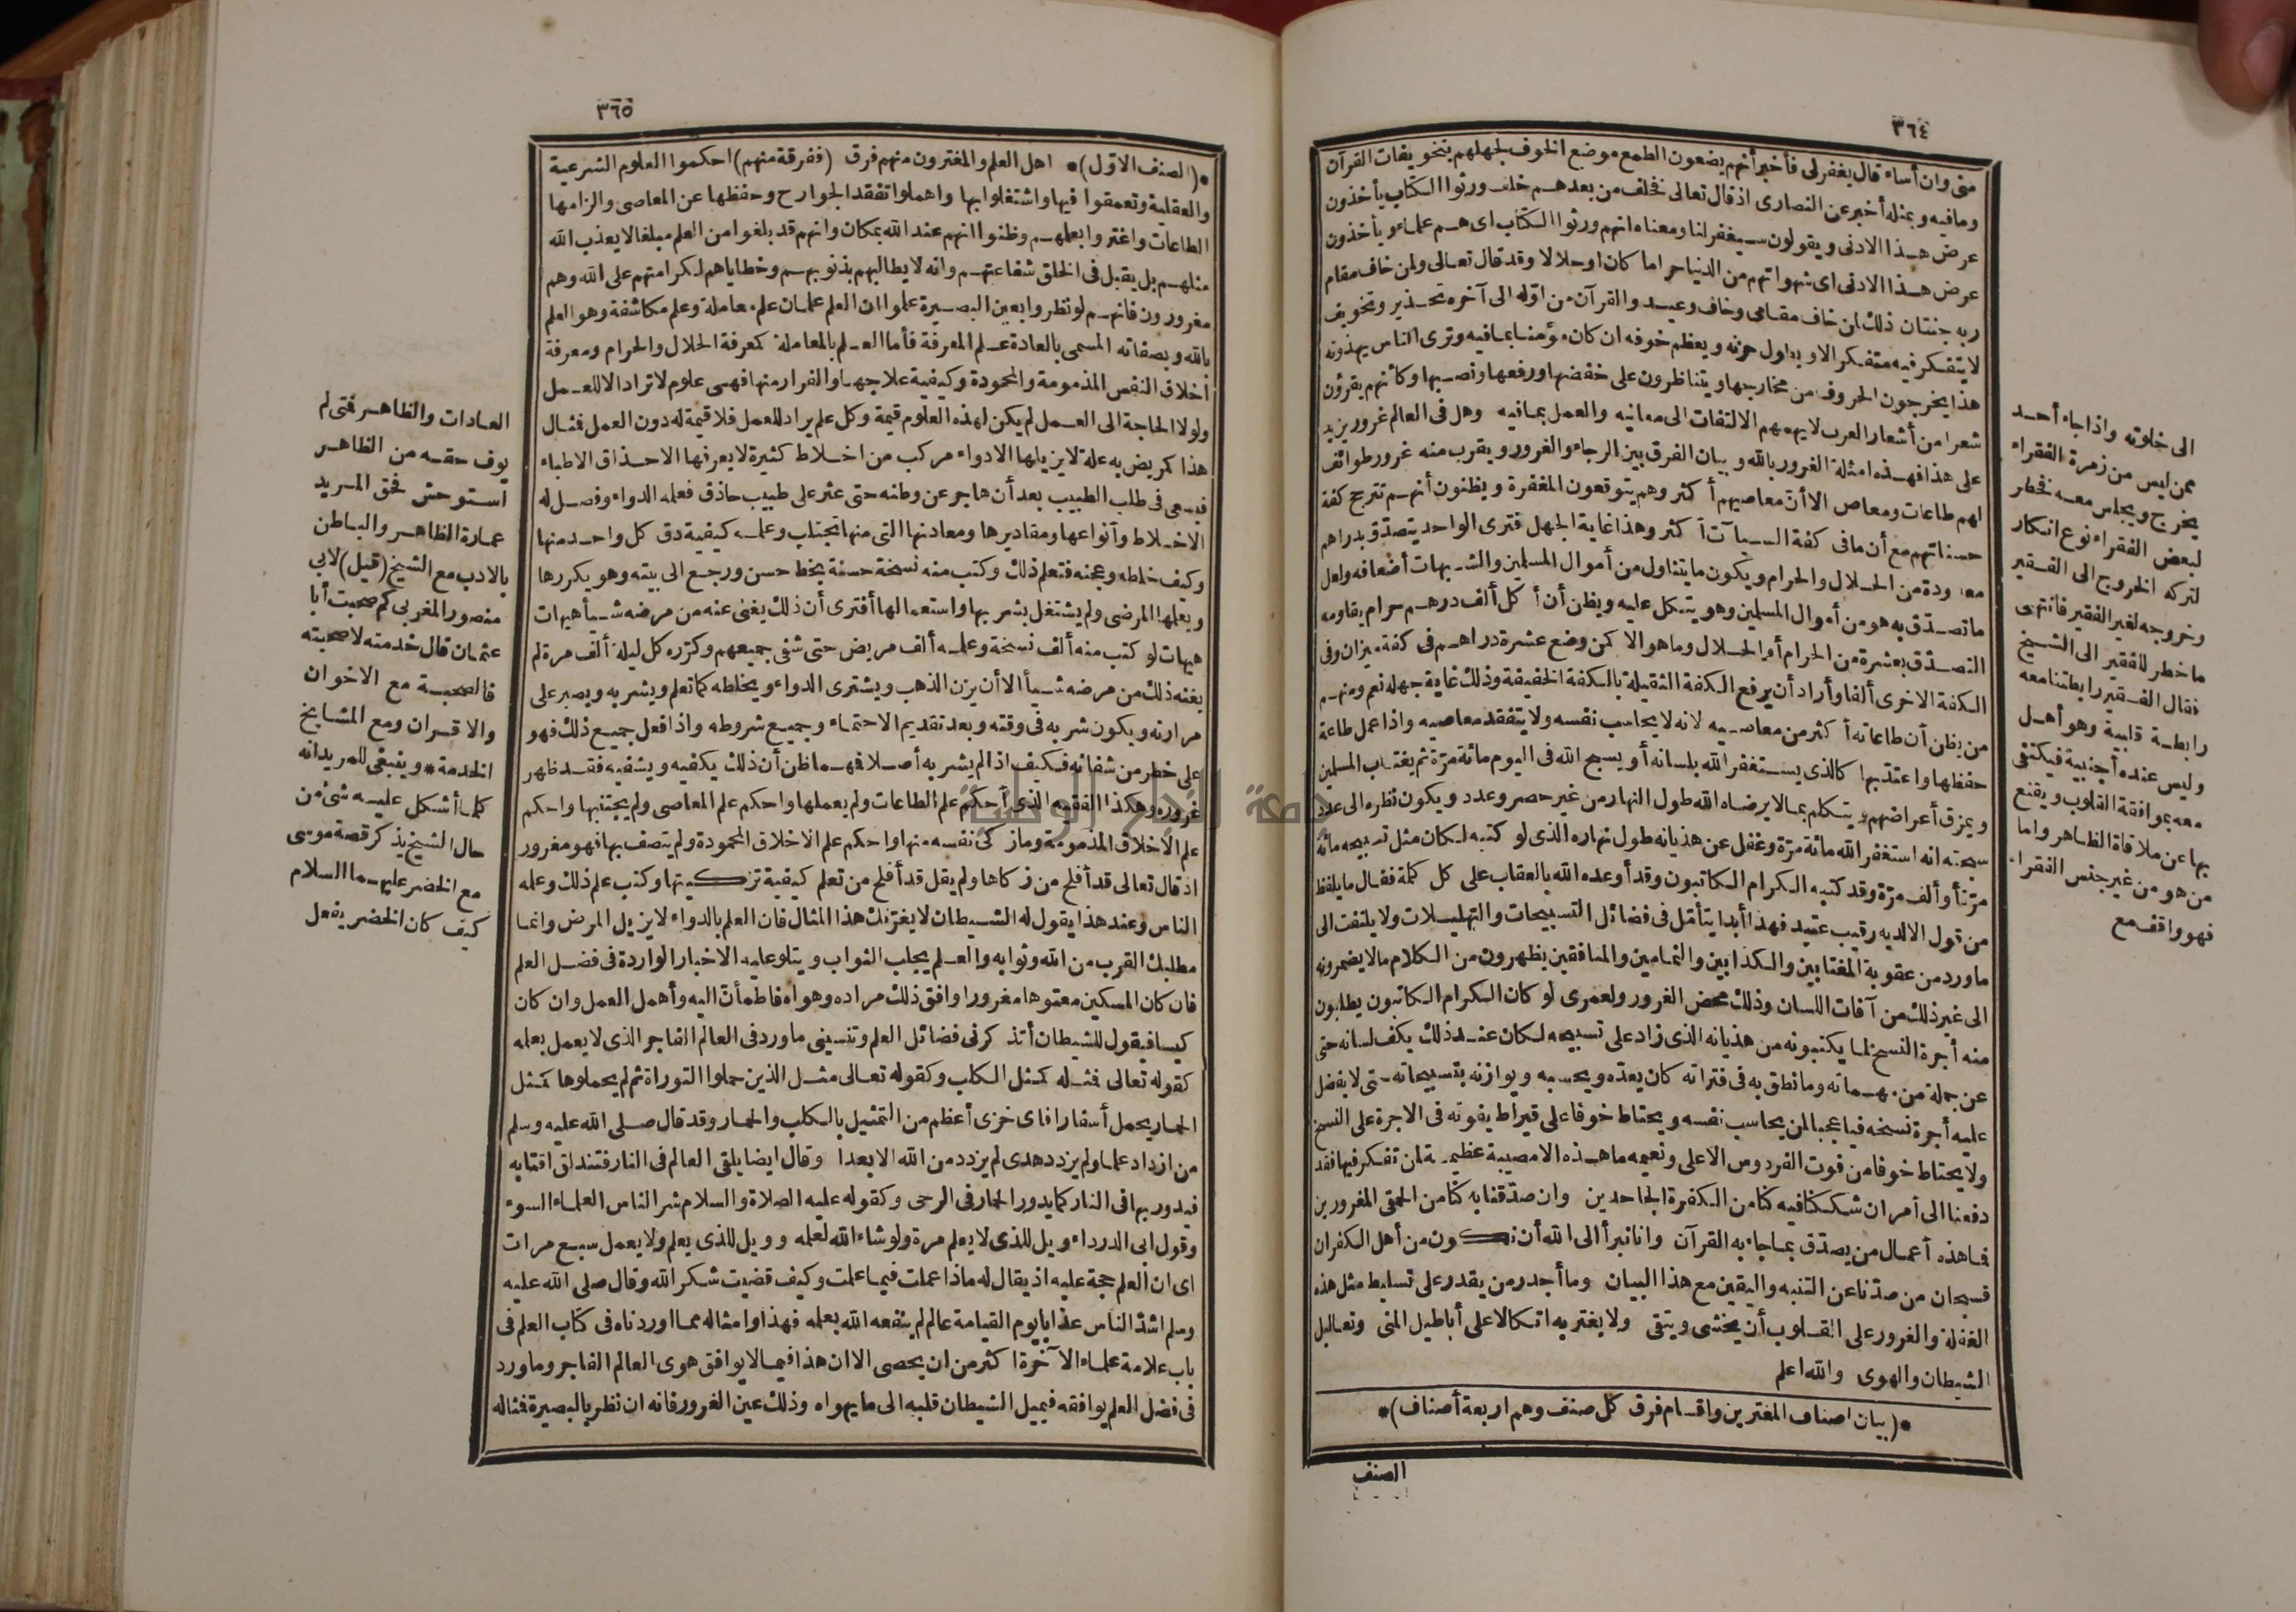 ٣٦٤
منى وان أساء قال يغفر لى فأخبر أنهم يضعون الطمع موضع الخوف لجهلهم بتخويفات القرآن
وما فيه و بمثله أخبر عن النصارى اذ قال تعالى فخلف من بعدهم خلف ورثوا الكتاب يأخذون
عرض هذا الادنى و يقولون سيغفر لنا ومعناه انهم ورثوا الكتاب اى هم علماء و يأخذون
عرض هذا الادنى اى شهواتهم من الدنيا حراما كان او حلالا وقد قال تعالى ولمن خاف مقام
ربه جنتان ذلك لمن خاف مقامى وخاف وعيد والقرآن من اوّله الى آخره تحذير وتخويف
لا يتفكر فيه متفكر الا و يطول حزنه و يعظم خوفه ان كان مؤمنا بما فيه وترى الناس يهذونه
هذا يخرجون الحروف من مخارجها و يتناظرون على خفضها ورفعها ونصبها وكأنهم يقرؤن
شعرا من أشعار العرب لا يهمهم الالتفات الى معانيه والعمل بما فيه وهل فى العالم غرور يزيد
على هذا فهذه امثلة الغرور بالله و بيان الفرق بين الرجاء والغرور و يقرب منه غرور طوائف
لهم طاعات ومعاص الا أنّ معاصيهم أكثر وهم يتوقعون المغفرة و يظنون أنهم تترجح كفة
حسناتهم مع أن ما فى كفة السيآت أكثر وهذا غاية الجهل فترى الواحد يتصدّق بدراهم
معدودة من الحلال والحرام و يكون ما يتناول من أموال المسلمين والشبهات أضعافه ولعل
ما تصدّق به هو من أموال المسلمين وهو يتكل عليه و يظن أن أكل ألف درهم حرام يقاومه
التصدّق بعشرة من الحرام أو الحلال وما هو الا كمن وضع عشرة دراهم فى كفة ميزان وفى
الكفة الاخرى ألفا وأراد أن يرفع الكفة الثقيلة بالكفة الخفيفة وذلك غاية جهله نعم ومنهم
من يظن أن طاعاته أكثر من معاصيه لانه لا يحاسب نفسه ولا يتفقد معاصيه واذا عمل طاعة
حفظها واعتدّ بها كالذى يستغفر الله بلسانه أو يسبح الله فى اليوم مائة مرّة ثم يغتاب المسلمين
و يمزق أعراضهم و يتكلم بما لا يرضاه الله طول النهار من غير حصر وعدد و يكون نظره الى عدد
سبحته انه استغفر الله مائة مرّة وغفل عن هذيانه طول نهاره الذى لو كتبه لكان مثل تسبيحه مائة
مرّة أو ألف مرّة وقد كتبه الكرام الكاتبون وقد أوعده الله بالعقاب على كل كلمة فقال ما يلفظ
من قول الا لديه رقيب عتيد فهذا أبدا يتأمّل فى فضائل التسبيحات والتهليلات ولا يلتفت الى
ما ورد من عقوبة المغتابين والكذابين والنمامين والمنافقين يظهرون من الكلام ما لا يضمرونه
الى غير ذلك من آفات اللسان وذلك محض الغرور ولعمرى لو كان الكرام الكاتبون يطلبون
منه أجرة النسخ لما يكتبونه من هذيانه الذى زاد على تسبيحه لكان عند ذلك يكف لسانه حتى
عن جملة من مهماته وما نطق به فى فتراته كان يعدّه و يحسبه و يوازنه بتسبيحاته حتى لا يفضل
عليه أجرة نسخه فيا عجبا لمن يحاسب نفسه و يحتاط خوفا على قيراط يفوته فى الاجرة على النسخ
ولا يحتاط خوفا من فوت الفردوس الاعلى ونعيمه ما هذه الا مصيبة عظيمة لمن تفكر فيها فقد
دفعنا الى أمر ان شككنا فيه كنا من الكفرة الجاحدين وان صدّقنا به كنا من الحمقى المغرورين
فما هذه أعمال من يصدّق بما جاء به القرآن وانا نبرأ الى الله أن نكون من أهل الكفران
فسبحان من صدّنا عن التنبه واليقين مع هذا البيان وما أجدر من يقدر على تسليط مثل هذه
الغفلة والغرور على القلوب أن يخشى و يتقى ولا يغتر به اتكالا على أباطيل المنى وتعاليل
الشيطان والهوى والله اعلم
*(بيان اصناف المغترين واقسام فرق كل صنف وهم اربعة أصناف)*
الصنف
الى خلوته واذا جاء أحد
ممن ليس من زمرة الفقراء
يخرج و يجلس معه فخطر
لبعض الفقراء نوع انكار
لتركه الخروج الى الفقير
وخروجه لغير الفقير فانتهى
ما خطر للفقير الى الشيخ
فقال الفقير رابطتنا معه
رابطة قلبية وهو أهل
وليس عنده أجنبية فيكتفى
معه بموافقة القلوب و يقنع
بها عن ملاقاة الظاهر واما
من هو من غير جنس الفقراء
فهو واقف مع
٣٦٥
*(الصنف الاوّل)* اهل العلم والمغترون منهم فرق (ففرقة منهم) احكموا العلوم الشرعية
والعقلية وتعمقوا فيها واشتغلوا بها واهملوا تفقد الجوارح وحفظها عن المعاصى والزامها
الطاعات واغتروا بعلمهم وظنوا انهم عند الله بمكان وانهم قد بلغوا من العلم مبلغا لا يعذب الله
مثلهم بل يقبل فى الخلق شفاعتهم وانه لا يطالبهم بذنوبهم وخطاياهم لكرامتهم على الله وهم
مغرورون فانهم لو نظروا بعين البصيرة علموا ان العلم علمان علم معاملة وعلم مكاشفة وهو العلم
بالله و بصفاته المسمى بالعادة علم المعرفة فأما العلم بالمعاملة كمعرفة الحلال والحرام ومعرفة
أخلاق النفس المذمومة والمحمودة وكيفية علاجها والفرار منها فهى علوم لا تراد الا للعمل
ولولا الحاجة الى العمل لم يكن لهذه العلوم قيمة وكل علم يراد للعمل فلا قيمة له دون العمل فمثال
هذا كمريض به علة لا يزيلها الا دواء مركب من اخلاط كثيرة لا يعرفها الا حذاق الاطباء
فيسعى فى طلب الطبيب بعد أن هاجر عن وطنه حتى عثر على طبيب حاذق فعلمه الدواء وفصل له
الاخلاط وأنواعها ومقاديرها ومعادنها التى منها تجتلب وعلمه كيفية دق كل واحد منها
وكيف خلطه وعجنه فتعلم ذلك وكتب منه نسخة حسنة بخط حسن ورجع الى بيته وهو يكررها
و يعلمها المرضى ولم يشتغل بشربها واستعمالها أفترى أن ذلك يغنى عنه من مرضه شيأ هيهات
هيهات لو كتب منه ألف نسخة وعلمه ألف مريض حتى شفى جميعهم وكرّره كل ليلة ألف مرة لم
يغنه ذلك من مرضه شيأ الا أن يزن الذهب و يشترى الدواء و يخلطه كما تعلم و يشربه و يصبر على
مرارته و يكون شربه فى وقته و بعد تقديم الاحتماء وجميع شروطه واذا فعل جميع ذلك فهو
على خطر من شفائه فكيف اذا لم يشربه أصلا فهما ظن أن ذلك يكفيه و يشفيه فقد ظهر
غروره وهكذا الفقيه الذى أحكم علم الطاعات ولم يعملها واحكم علم المعاصى ولم يجتنبها واحكم
علم الاخلاق المذمومة وما زكى نفسه منها واحكم علم الاخلاق المحمودة ولم يتصف بها فهو مغرور
اذ قال تعالى قد أفلح من زكاها ولم يقل قد أفلح من تعلم كيفية تزكيتها وكتب علم ذلك وعلمه
الناس وعند هذا يقول له الشيطان لا يغرّنك هذا المثال فان العلم بالدواء لا يزيل المرض وانما
مطلبك القرب من الله وثوابه والعلم يجلب الثواب و يتلو عليه الاخبار الواردة فى فضل العلم
فان كان المسكين معتوها مغرورا وافق ذلك مراده وهواه فاطمأنّ اليه وأهمل العمل وان كان
كيسا فيقول للشيطان أتذكرنى فضائل العلم وتنسينى ما ورد فى العالم الفاجر الذى لا يعمل بعلمه
كقوله تعالى فمثله كمثل الكلب وكقوله تعالى مثل الذين حملوا التوراة ثم لم يحملوها كمثل
الحمار يحمل أسفارا فاى خزى أعظم من التمثيل بالكلب والحمار وقد قال صلى الله عليه وسلم
من ازداد علما ولم يزدد هدى لم يزدد من الله الا بعدا وقال ايضا يلقى العالم فى النار فتندلق اقتابه
فيدور بها فى النار كما يدور الحمار فى الرحى وكقوله عليه الصلاة والسلام شر الناس العلماء السوء
وقول ابى الدرداء ويل للذى لا يعلم مرة ولو شاء الله لعلمه وويل للذى يعلم ولا يعمل سبع مرات
اى ان العلم حجة عليه اذ يقال له ماذا عملت فيما علمت وكيف قضيت شكر الله وقال صلى الله عليه
وسلم اشدّ الناس عذابا يوم القيامة عالم لم ينفعه الله بعلمه فهذا وامثاله مما اوردناه فى كتاب العلم فى
باب علامة علماء الآخرة اكثر من ان يحصى الا ان هذا فيما لا يوافق هوى العالم الفاجر وما ورد
فى فضل العلم يوافقه فيميل الشيطان قلبه الى ما يهواه وذلك عين الغرور فانه ان نظر بالبصيرة فمثاله
العادات والظاهر فتى لم
يوف حقه من الظاهر
استوحش فحق المريد
عمارة الظاهر والباطن
بالادب مع الشيخ (قيل) لابى
منصور المغربى كم صحبت أبا
عثمان قال خدمته لا صحبته
فالصحبة مع الاخوان
والاقران ومع المشايخ
الخدمة * و ينبغى للمريد انه
كلما أشكل عليه شئ من
حال الشيخ يذكر قصة موسى
مع الخضر عليهما السلام
كيف كان الخضر يفعل